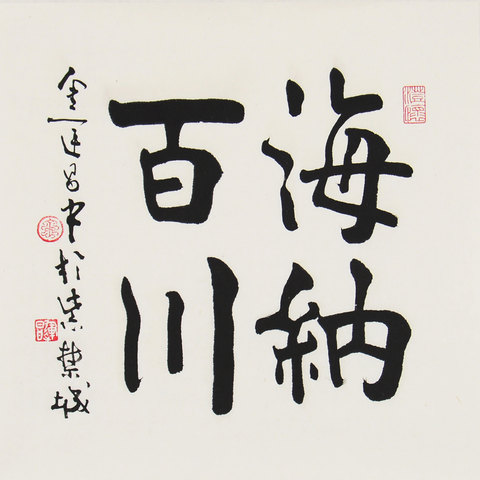 海納
百川
金運昌書於紫禁城